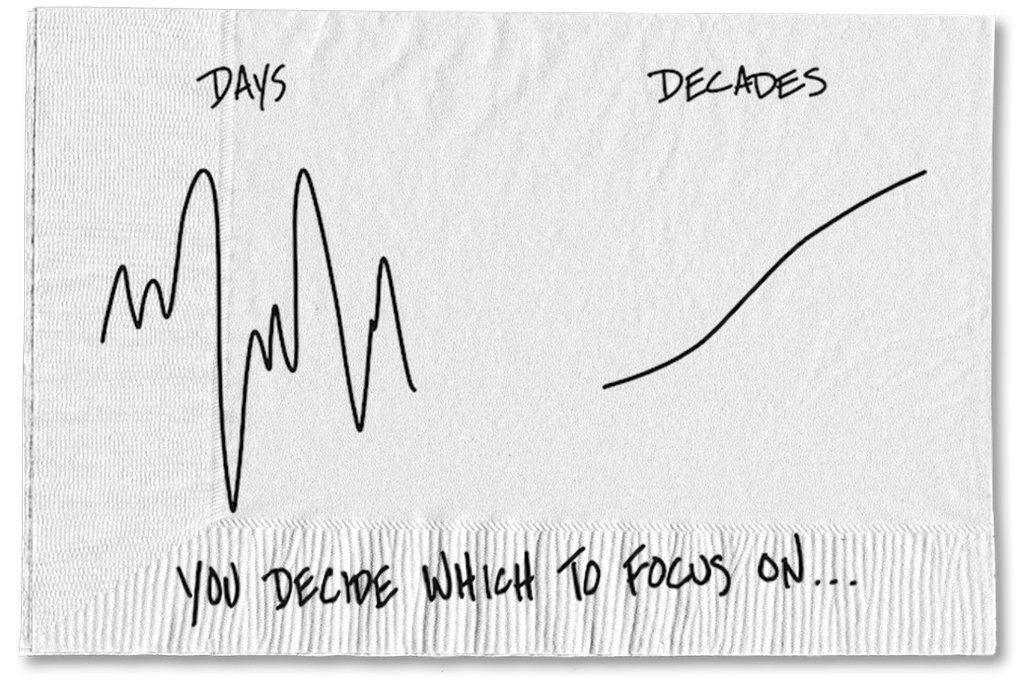 DAYS
DECADES
YOU DECIDE WHICH TO FOCUS ON...